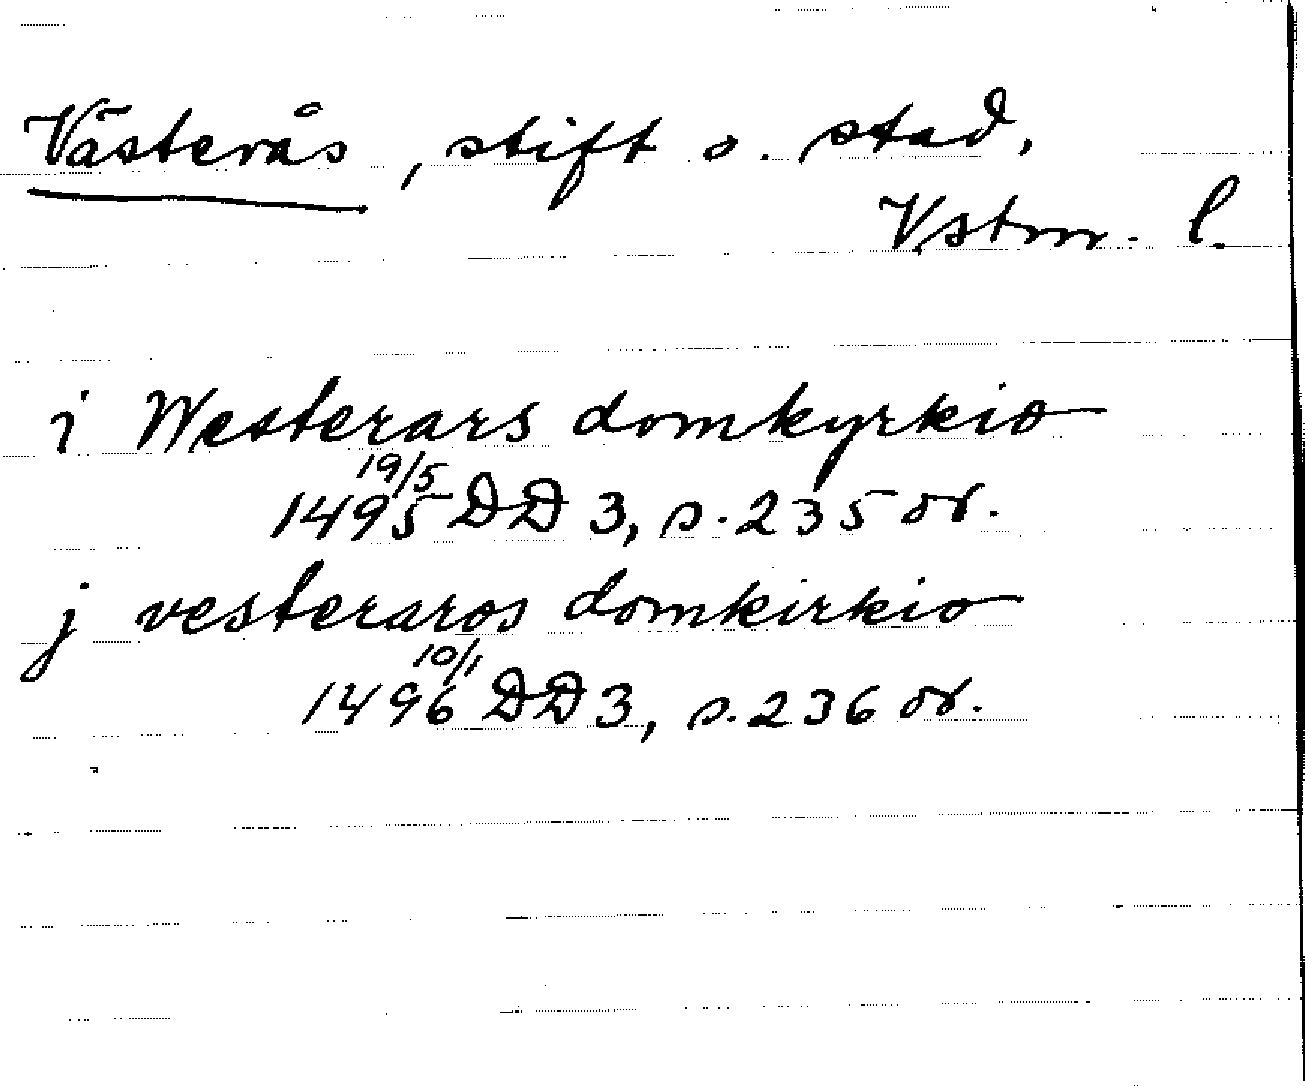 Västerås, stift o. stad,
Vstm. l.
i Westerars domkyrkio
19/5
1495 DD 3, s. 235 or.
j vesteraros domkirkio
10/1
1496 DD 3, s. 236 or.